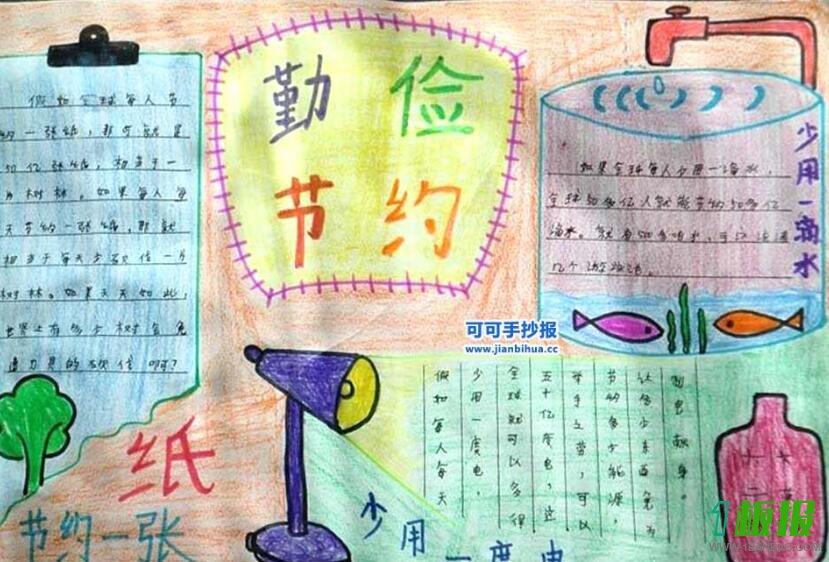 勤俭
节约
假如全球每人节
约一张纸，那可就是
50亿张纸，相当于一
片树林。如果每人每
天节约一张纸，那就
相当于每天少砍伐一片
树林。如果天天如此，
世界上有多少树会免
遭刀具的砍伐啊？
节约一张
纸
少用一滴水
如果全球每人少用一滴水，
全球50多亿人就能节约50多亿
滴水。就有50多吨水，可以注满
几个游泳池。
可可手抄报
www.jianbihua.cc
假如每人每天
少用一度电，
全球就可以多得
五十亿度电，这
举手之劳，可以
节约多少能源，
让多少东西免为
制电献身。
少用一度电
板报